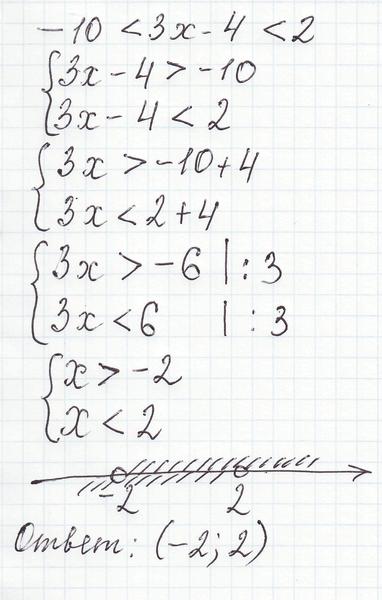 -10 < 3x - 4 < 2
3x - 4 > -10
3x - 4 < 2
3x > -10 + 4
3x < 2 + 4
3x > -6 | : 3
3x < 6 | : 3
x > -2
x < 2
-2 2
Ответ: (-2; 2)